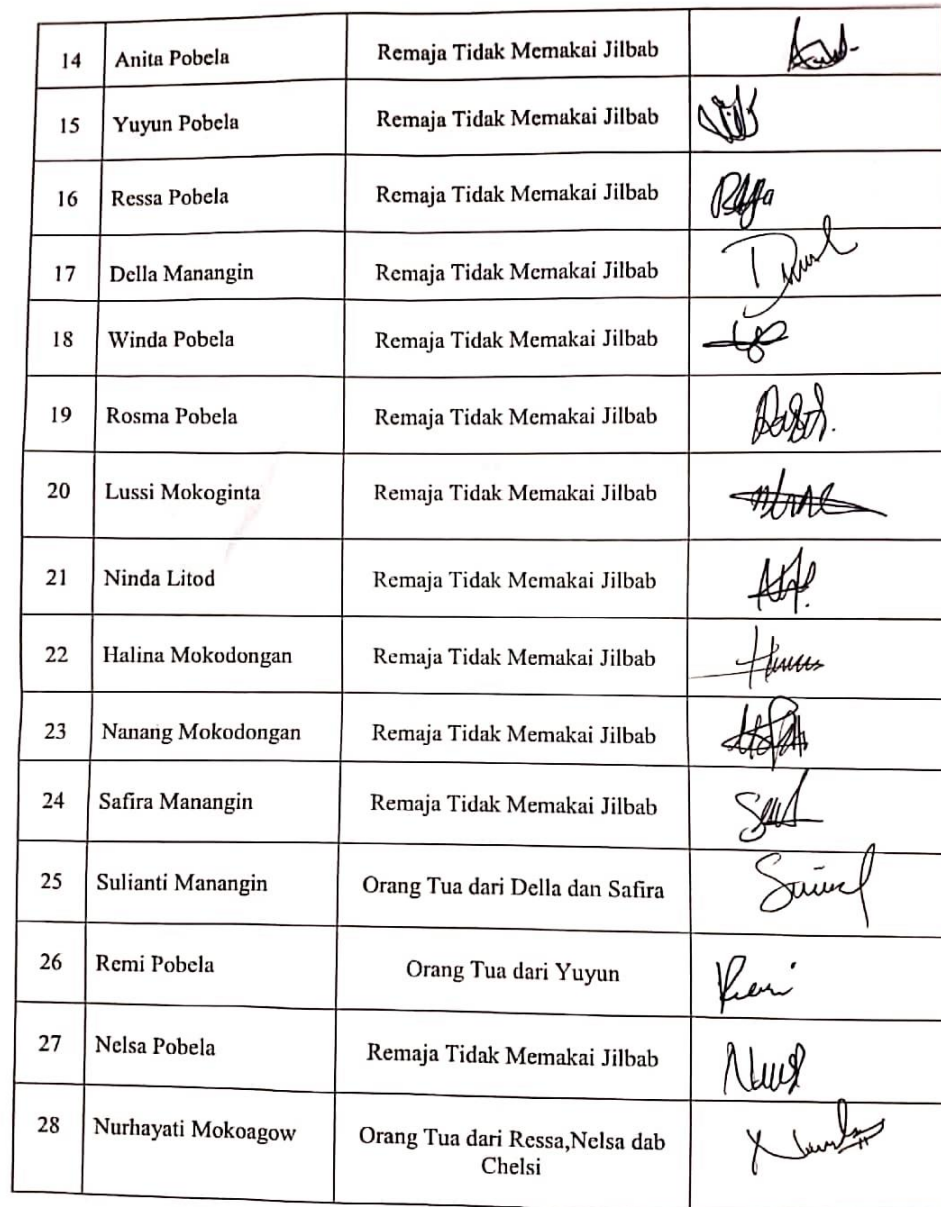 14 Anita Pobela Remaja Tidak Memakai Jilbab
15 Yuyun Pobela Remaja Tidak Memakai Jilbab
16 Ressa Pobela Remaja Tidak Memakai Jilbab
17 Della Manangin Remaja Tidak Memakai Jilbab
18 Winda Pobela Remaja Tidak Memakai Jilbab
19 Rosma Pobela Remaja Tidak Memakai Jilbab
20 Lussi Mokoginta Remaja Tidak Memakai Jilbab
21 Ninda Litod Remaja Tidak Memakai Jilbab
22 Halina Mokodongan Remaja Tidak Memakai Jilbab
23 Nanang Mokodongan Remaja Tidak Memakai Jilbab
24 Safira Manangin Remaja Tidak Memakai Jilbab
25 Sulianti Manangin Orang Tua dari Della dan Safira
26 Remi Pobela Orang Tua dari Yuyun
27 Nelsa Pobela Remaja Tidak Memakai Jilbab
28 Nurhayati Mokoagow Orang Tua dari Ressa,Nelsa dab
Chelsi